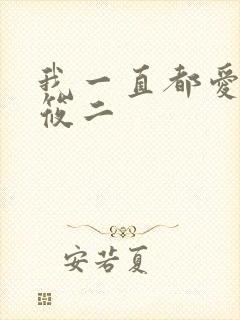 我一直都愛
筱二
安若夏